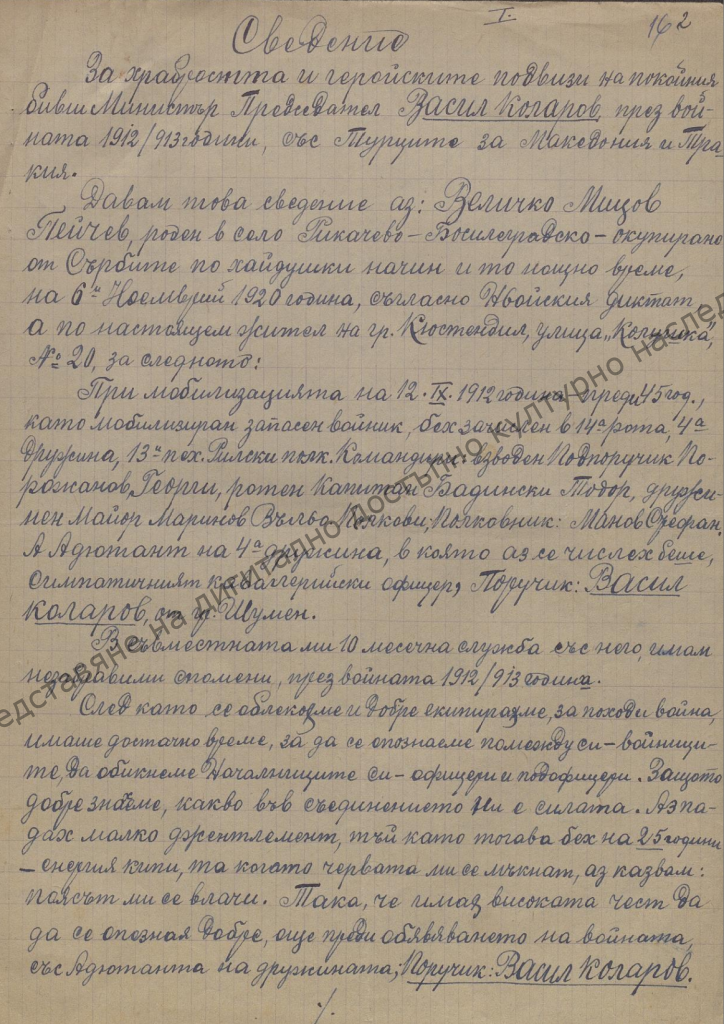 I.
162
Сведение
За храбростта и геройските подвизи на покойния
бивш Министър Председател Василъ Коларов, през вой-
ната 1912/913 години, със Турците за Македония и Тра-
кия.
Давам това сведение аз: Величко Мицов
Пейчев, роден в село Рикачево – Босилеградско – окупирано
от Сърбите по хайдушки начин и то нощно време,
на 6й Ноемврий 1920 година, съгласно Ньойския диктат
а по настоящем жител на гр. Кюстендил, улица „Калушка",
№ 20, за следното:
При мобилизацията на 12.IX.1912 година, преди 45 год.,
като мобилизиран запасен войник, бех зачислен в 14а рота, 4а
дружина, 13й пех. Рилски полк. Командири: взводен Подпоручик По-
рожанов, Георги, ротен Капитан Бадински Тодор, дружи-
нен Майор Маринов Вълко, Полкови; Полковник: Манов Стефан.
А Адютант на 4а дружина, в която аз се числех беше,
симпатичният кавалерийски офицер, Поручик: Васил
Коларов, от гр. Шумен.
В съвместната ми 10 месечна служба със него, имам
незабравими спомени, през войната 1912/913 година.
След като се облекохме и добре екипирахме, за поход и война,
имаше достачно време, за да се опознаем помежду си – войници-
те, да обикнеме Началниците си – офицери и подофицери. Защото
добре знаеме, какво във съединението ни е силата. Аз па-
дах малко джентлемент, тъй като тогава бех на 25 години
– енергия кипи, та когато червата ми се мъкнат, аз казвам:
поясът ми се влачи. Така, че имах високата чест да
да се опозная добре, още преди обявяването на войната,
със Адютанта на дружината; Поручик: Васил Коларов.
./.
представяне на дигитално достъпно културно наслед